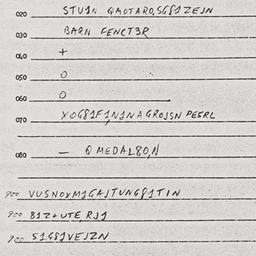 020 STU1N QAOTARO,5G81ZEJN
030 BARN FENCT3R
040 +
050 0
060 0
070 YOG81F1N1NAGROJSN PESRL
080 — QMEDAL80,N
900 VUSNOYM1GAJTUNG81TIN
900 81Z+UTE,RJ1
900 51G81VEJZN